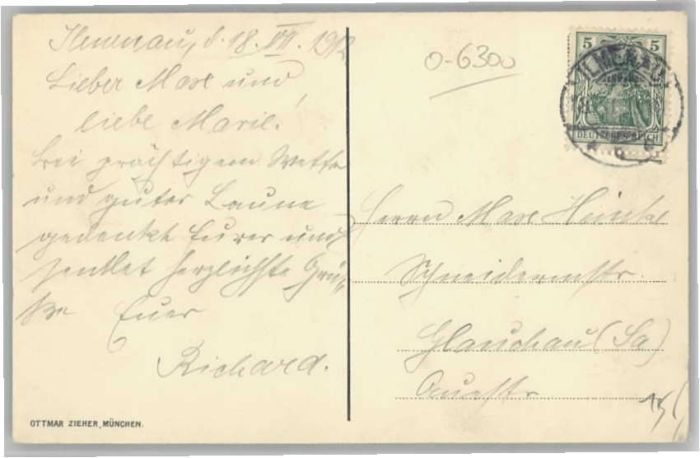 Ilmenau, d. 18. VII. 1912
Lieber Max und
liebe Marie!
Bei prächtigem Wetter
und guter Laune
gedenkt Eurer und
sendet herzlichste Grü-
ße Euer
Richard.
OTTMAR ZIEHER, MÜNCHEN.
0-6300
5 5
ILMENAU
DEUTSCHES REICH
Herrn Max
Schneidermstr.
Glauchau (Sa)
Auestr.